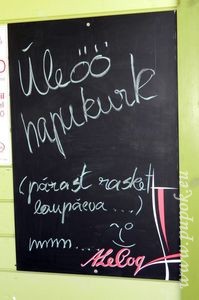 Üleöö
hapukurk
(pärast rasket
laupäeva....)
mmm....
ALeCoq
www.pupok.eu